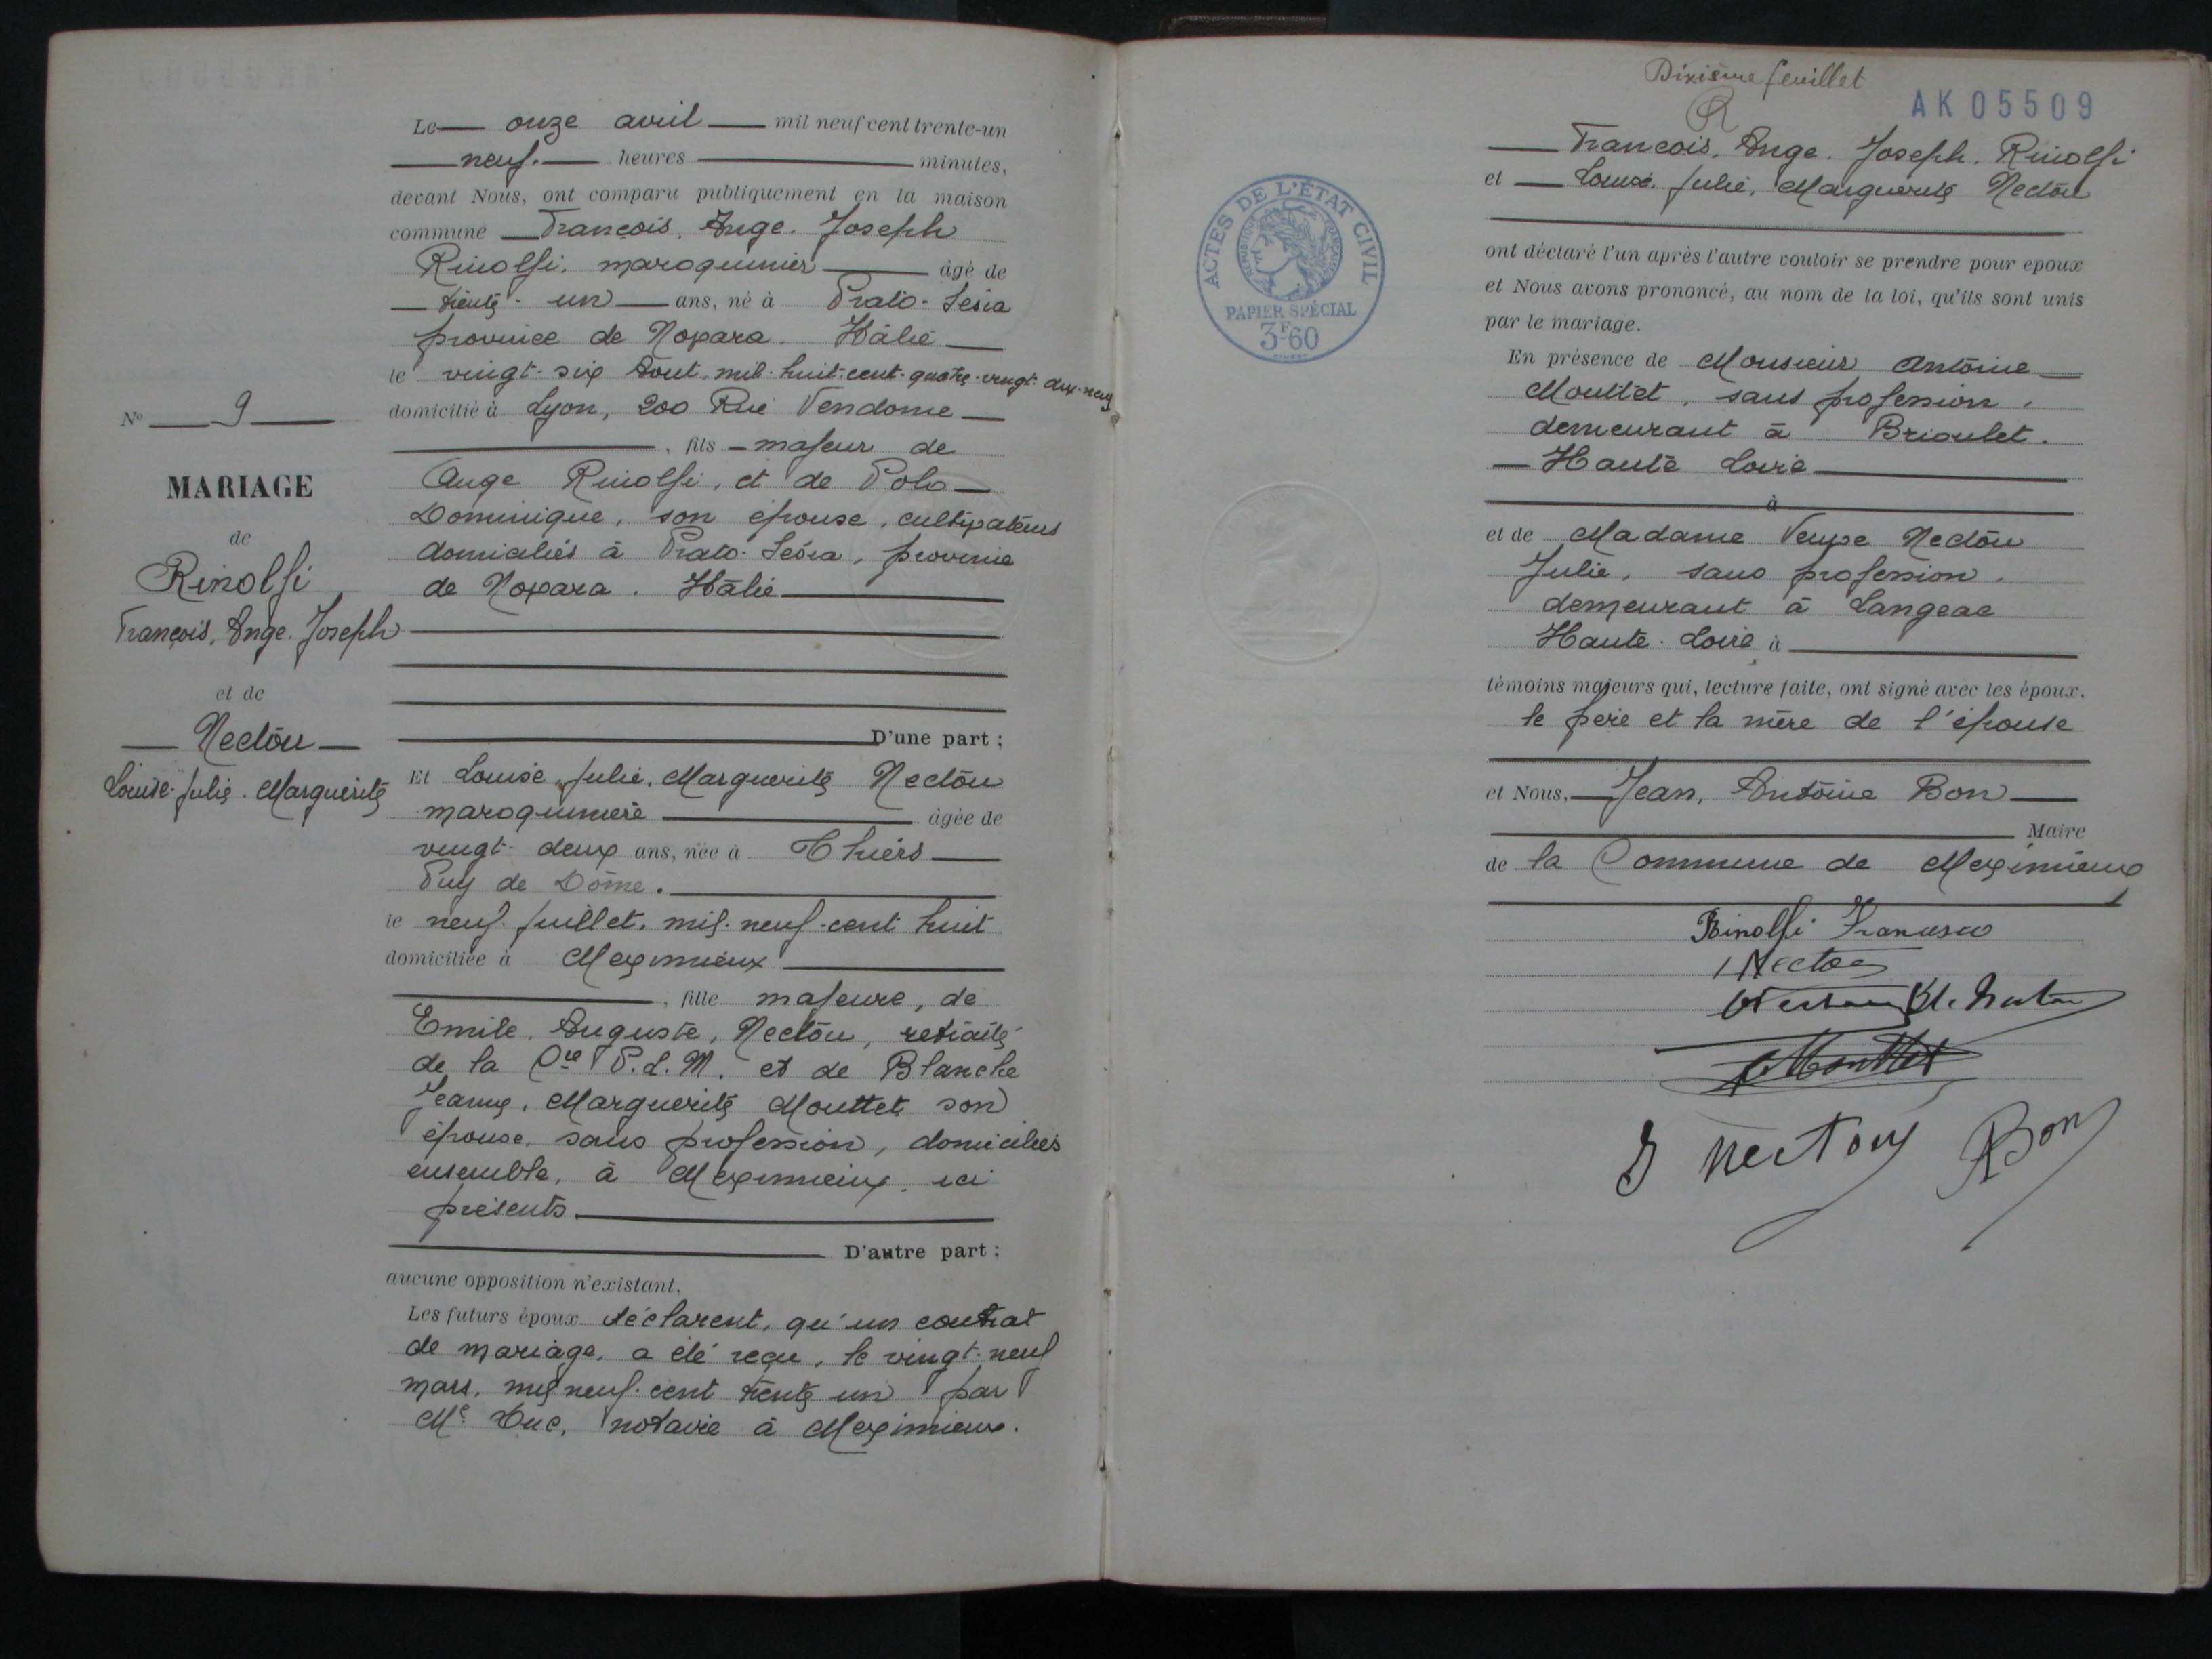 Le onze avril mil neuf cent trente-un
neuf. heures minutes,
devant Nous, ont comparu publiquement en la maison
commune François, Ange. Joseph
Rinolfi. maroquinier âgé de
trente-un ans, né à Prato-Sesia
province de Novara. Italie
le vingt-six Aout. mil-huit-cent-quatre-vingt-dix-neuf
domicilié à Lyon, 200 Rue Vendome
, fils majeur de
Ange Rinolfi, et de Polo
Dominique, son épouse, cultivateurs
domiciliés à Prato-Sesia, province
de Novara. Italie
D'une part ;
N° 9
MARIAGE
de
Rinolfi
François, Ange. Joseph
et de
Nectou
Louise-Julie-Marguerite
Et Louise, Julie, Marguerite Nectou
maroquiniere âgée de
vingt-deux ans, née à Thiers
Puy de Dôme.
le neuf juillet, mil-neuf-cent huit
domiciliée à Meximieux
, fille majeure, de
Emile, Auguste, Nectou, retraité
de la Cie P.L.M. et de Blanche
Jeanne, Marguerite Mouttet son
épouse, sans profession, domiciliés
ensemble, à Meximieux, ici
présents.
D'autre part ;
aucune opposition n'existant,
Les futurs époux déclarent, qu'un contrat
de mariage, a été reçu, le vingt-neuf
mars, mil neuf-cent trente un par
Me Duc, notaire à Meximieux.
Dixième feuillet
AK 05509
ACTES DE L'ÉTAT CIVIL
RÉPUBLIQUE FRANÇAISE
PAPIER SPÉCIAL
3F60
François, Ange. Joseph. Rinolfi
et Louise, Julie, Marguerite Nectou
ont déclaré l'un après l'autre vouloir se prendre pour epoux
et Nous avons prononcé, au nom de la loi, qu'ils sont unis
par le mariage.
En présence de Monsieur Antoine
Mouttet, sans profession,
demeurant à Brioulet.
Haute Loire
à
et de Madame Veuve Nectou
Julie, sans profession.
demeurant à Langeac
Haute-Loire à
témoins majeurs qui, lecture faite, ont signé avec les époux.
le père et la mère de l'épouse
et Nous, Jean, Antoine Bon
Maire
de la Commune de Meximieux
Rinolfi Francesco
Nectou
Mouttet
J Nectou
Bon